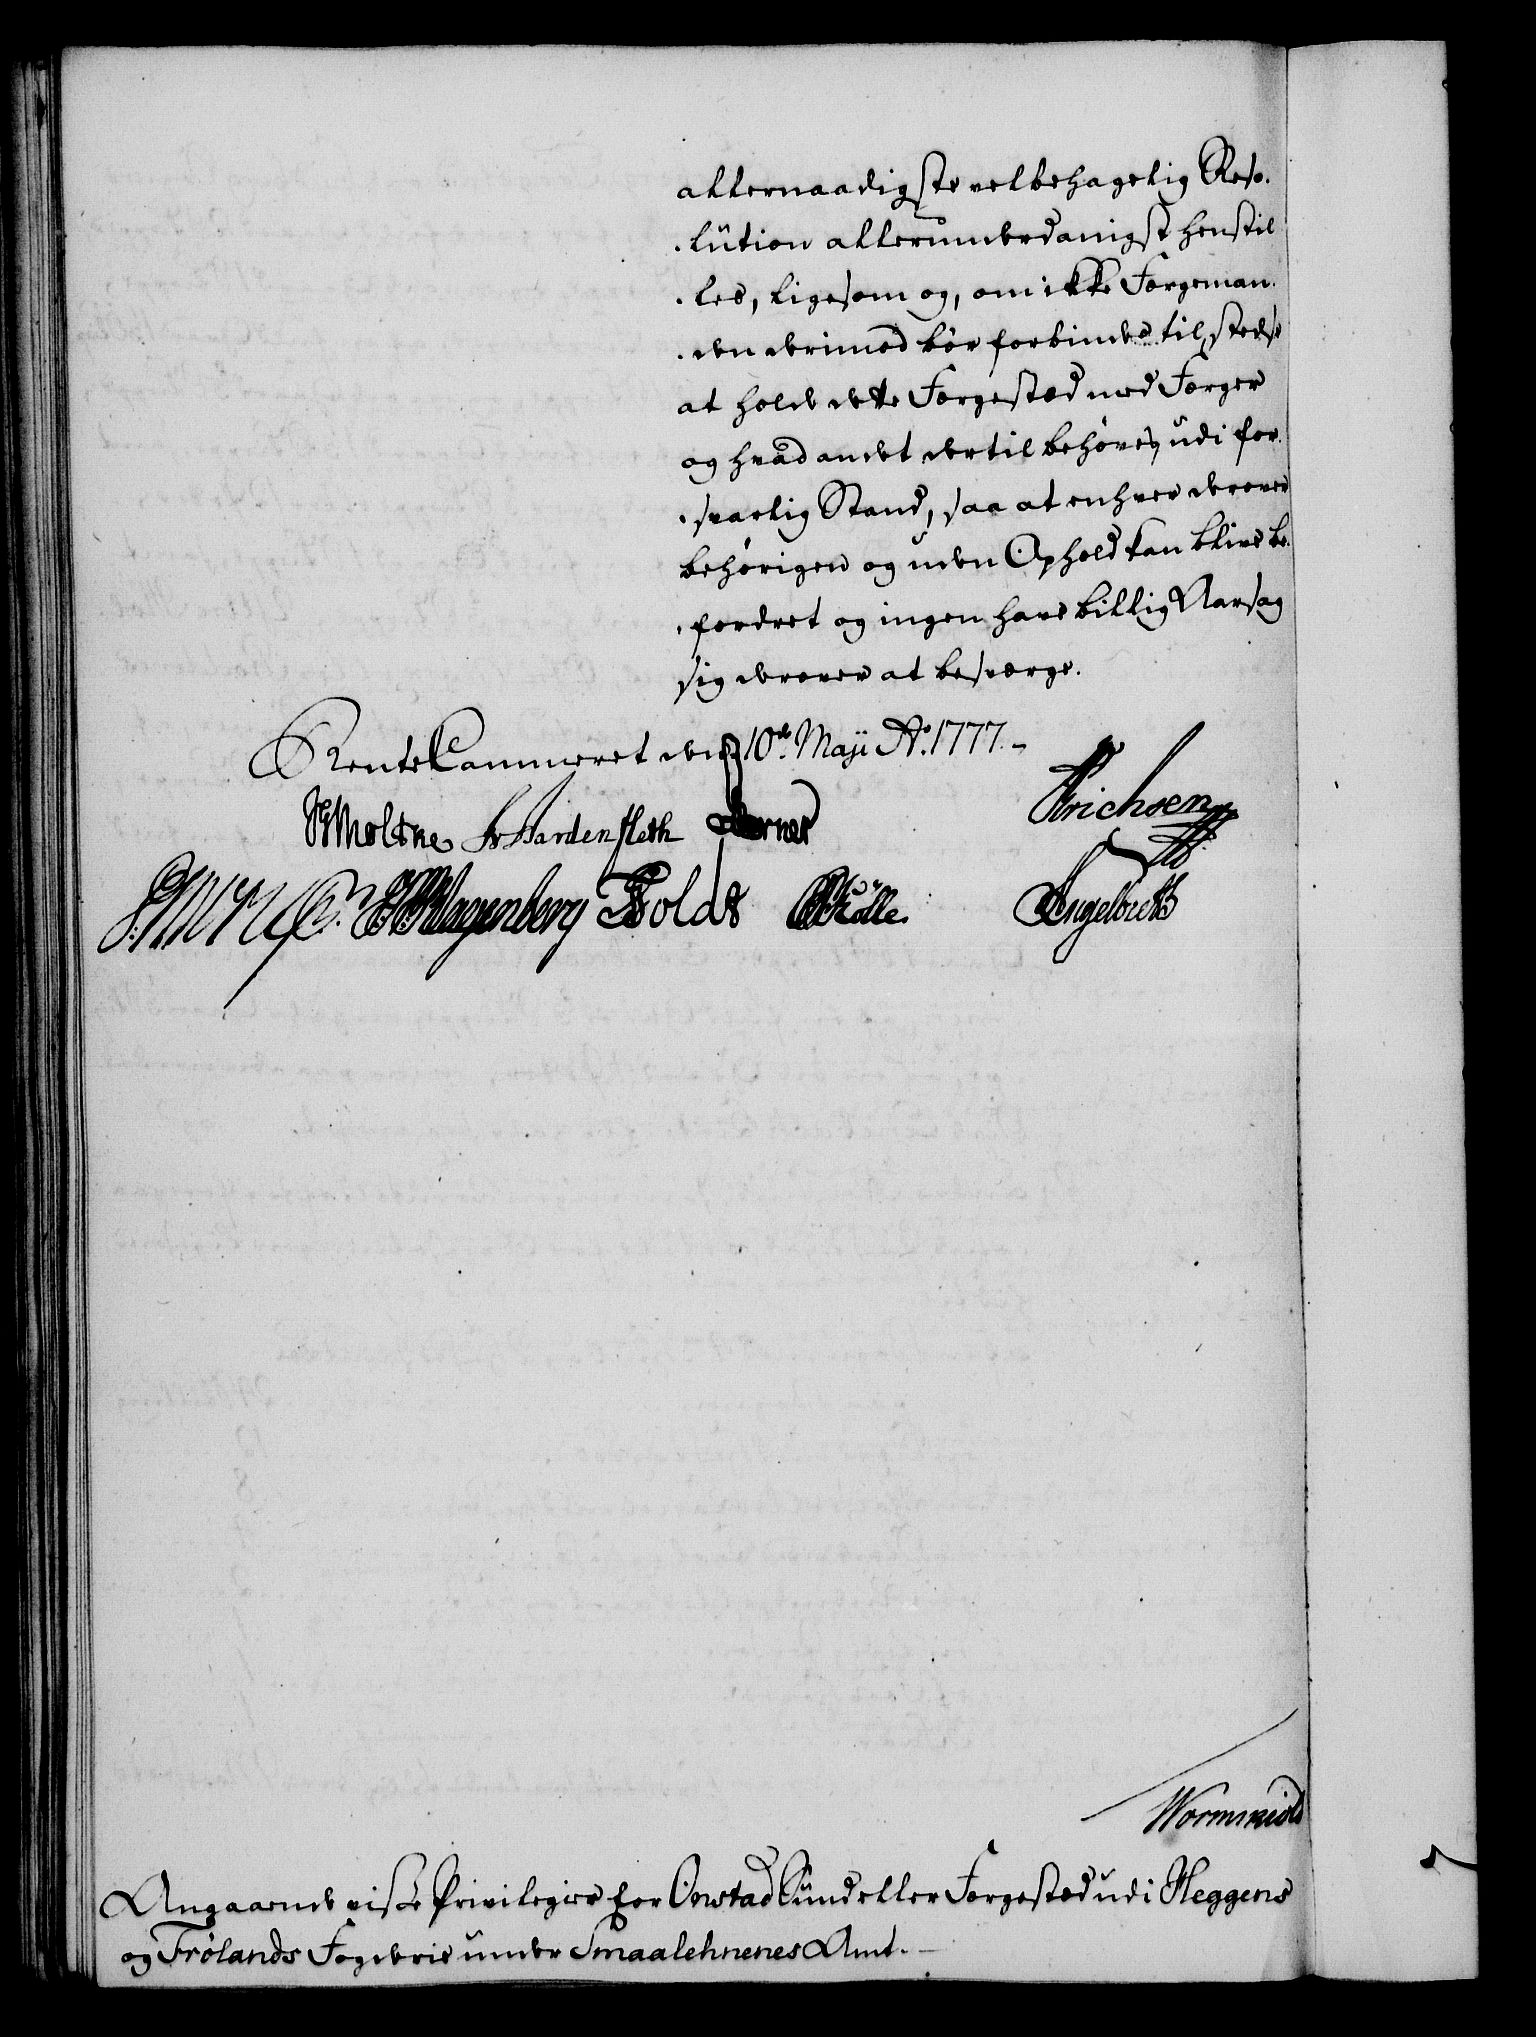 allernaadigste velbehagelig Reso-
lution allerunderdanigst henstil-
les, ligesom og, om ikke Færgeman-
den derimod bør forbindes til stedse
at holde dette Færgestæd med Færger
og hvad andet dertil behøves, udi for-
svarlig Stand, saa at enhver derover
behørigen og uden Ophold kan blive be-
fordret og ingen have billig Aarsag
sig derover at besværge.
RenteCammeret den 10de Maji Ao. 1777.
Moltke Hardenfleth Berner Erichsen
Klagenberg Holdt Rølle Engelbreth
Wormskiold
Angaaende visse Privilegier for Onstad Sund eller Færgestæd udi Heggens
og Frølands Fogderie under Smaalehnenes Amt.